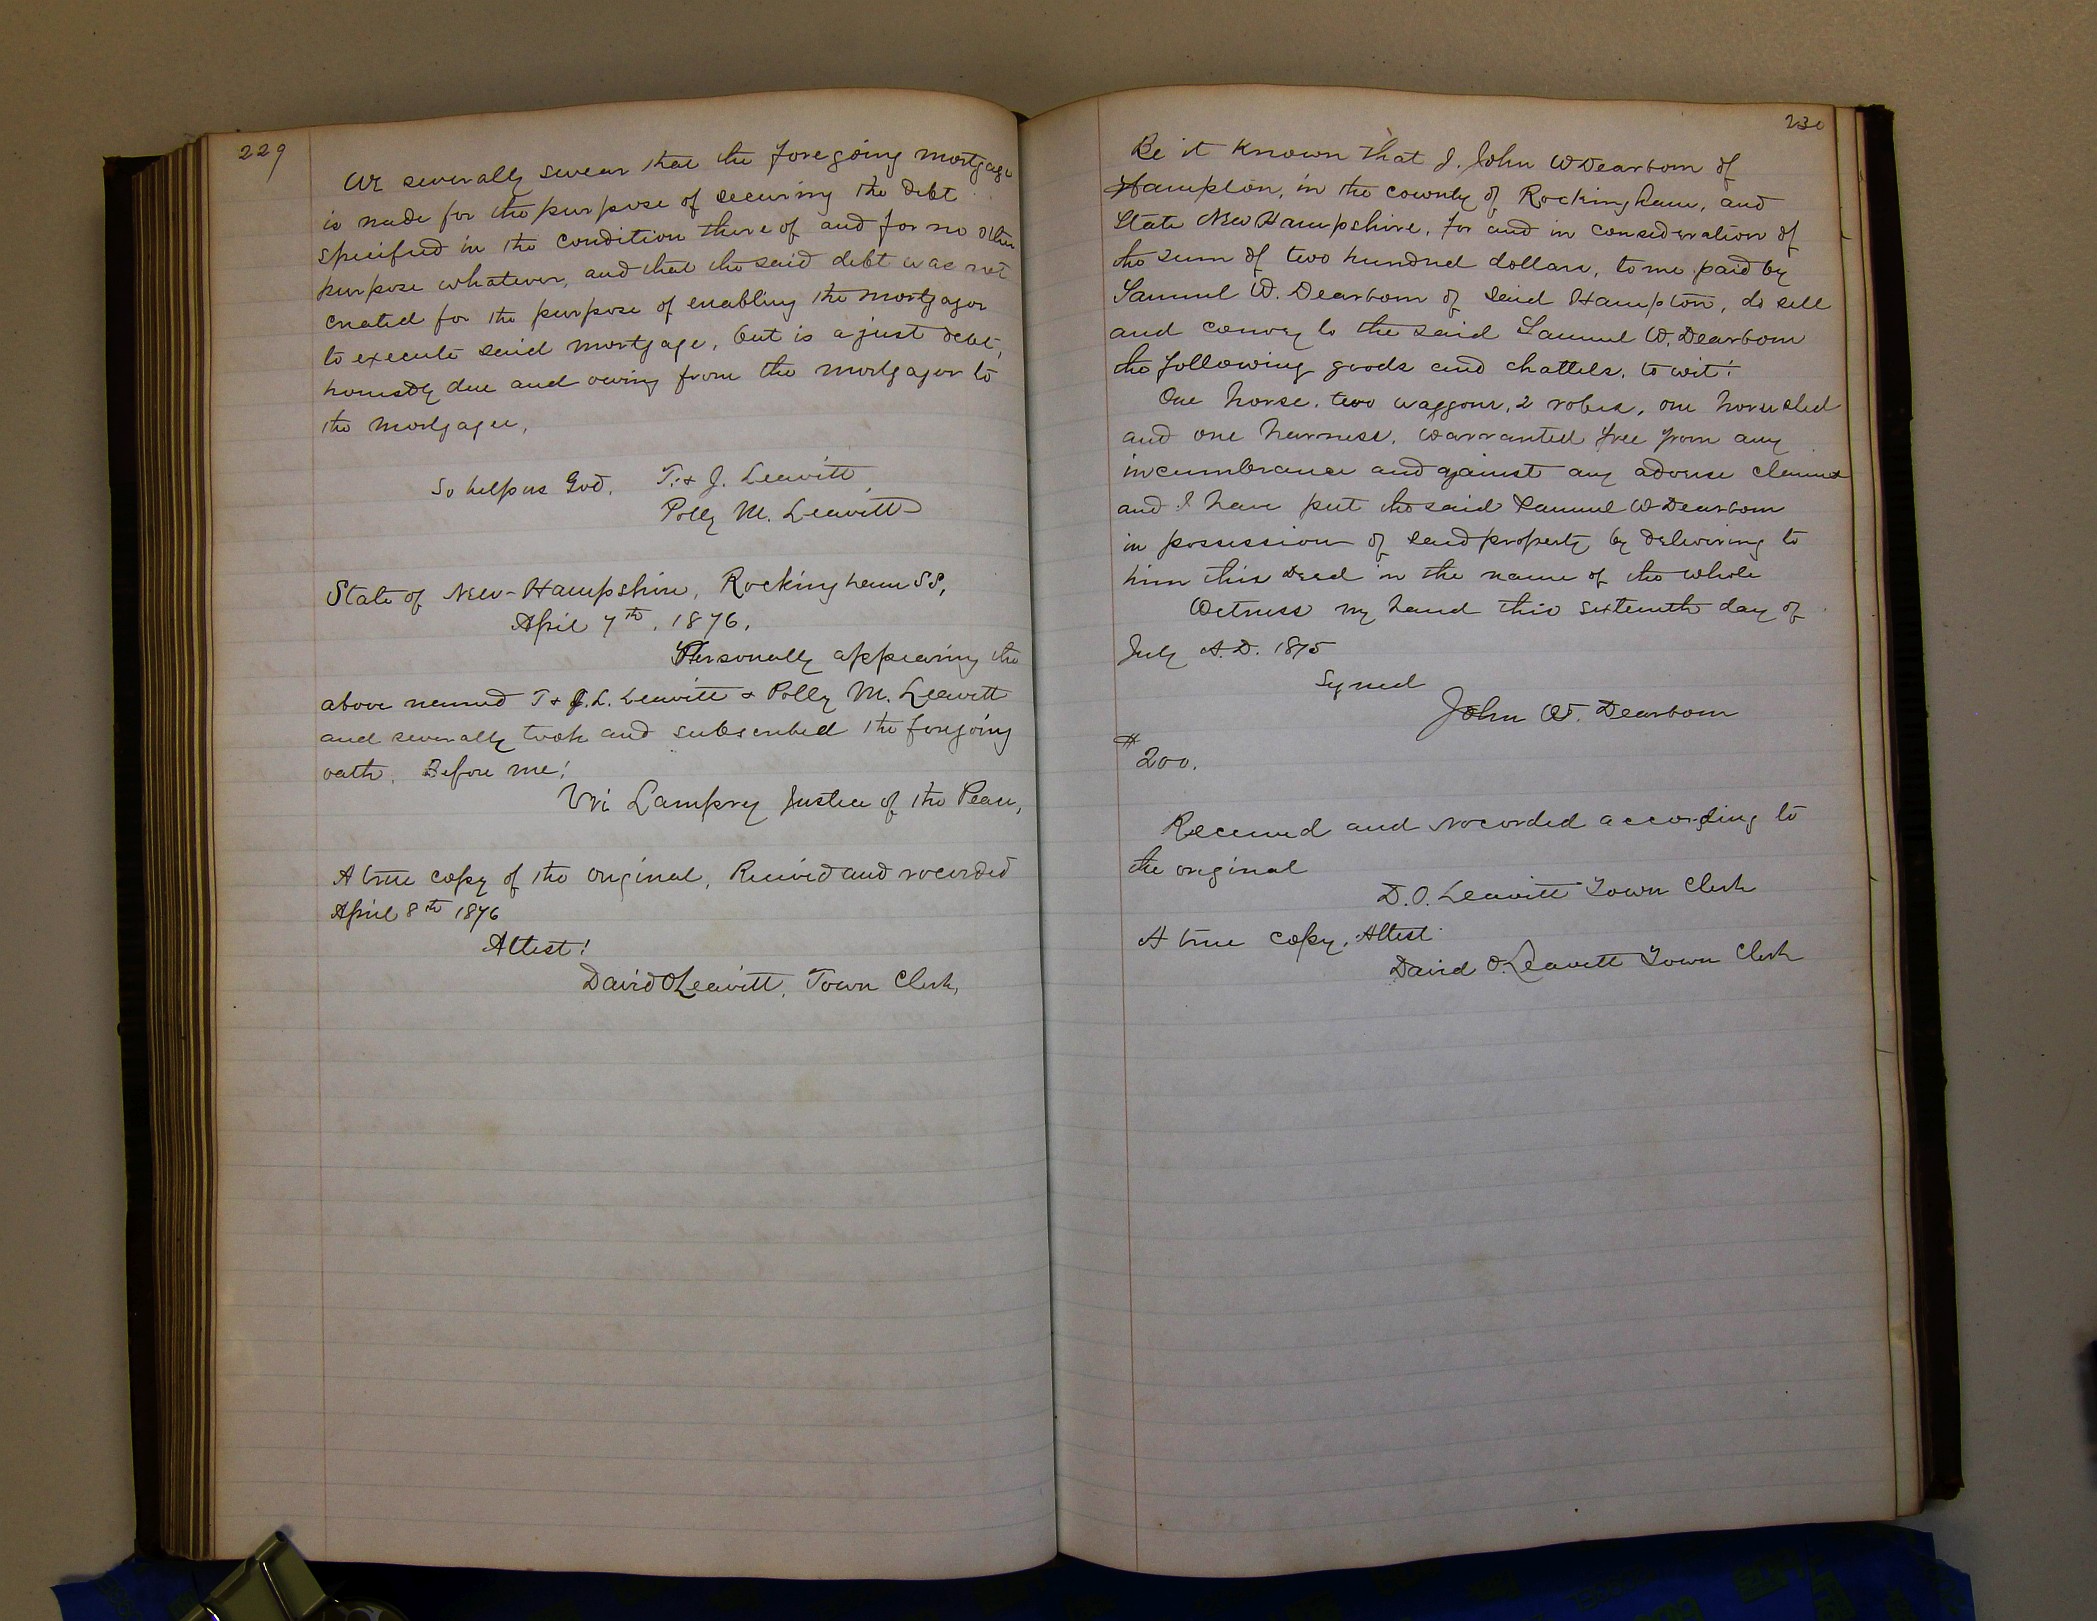 229
We severally swear that the foregoing mortgage
is made for the purpose of securing the debt
specified in the condition there of and for no other
purpose whatever, and that the said debt was not
created for the purpose of enabling the mortgagor
to execute said mortgage, but is a just debt,
honestly due and owing from the mortgagor to
the mortgagee,
So help us God. T. & J. Leavitt
Polly M. Leavitt
State of New-Hampshire, Rockingham SS,
April 7th, 1876.
Personally appearing the
above named T & J. L. Leavitt & Polly M. Leavitt
and severally took and subscribed the foregoing
oath. Before me!
Uri Lamprey Justice of the Peace,
A true copy of the original, Received and recorded
April 8th 1876
Attest!
David O Leavitt, Town Clerk,
230
Be it Known that I, John W Dearborn of
Hampton, in the county of Rockingham, and
State New Hampshire, for and in consideration of
the sum of two hundred dollars, to me paid by
Samuel W. Dearborn of said Hampton, do sell
and convey to the said Samuel W. Dearborn
the following goods and chattels, to wit!
One horse, two waggons, 2 robes, one horse sled
and one harness, warranted free from any
incumbrance and against any adverse claims
and I have put the said Samuel W Dearborn
in possession of said property by delivering to
him this Deed in the name of the whole
Witness my hand this sixteenth day of
July A.D. 1875
Signed
John W. Dearborn
$200.
Received and recorded according to
the original
D. O. Leavitt Town Clerk
A true copy, Attest
David O. Leavitt Town Clerk